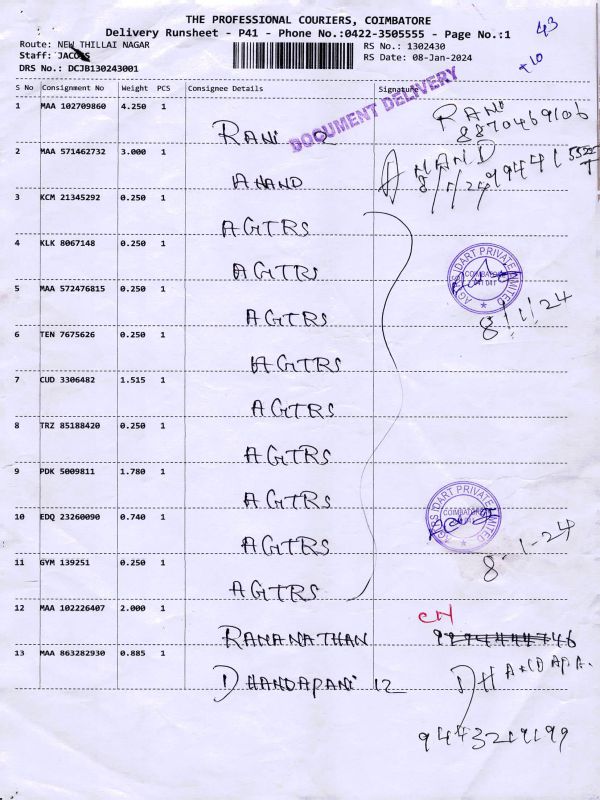 THE PROFESSIONAL COURIERS, COIMBATORE
Delivery Runsheet - P41 - Phone No.:0422-3505555 - Page No.:1
43
Route: NEW THILLAI NAGAR
RS No.: 1302430
Staff: JACOB
RS Date: 08-Jan-2024
+10
DRS No.: DCJB130243001
S No Consignment No Weight PCS Consignee Details Signature
DOCUMENT DELIVERY
1 MAA 102709860 4.250 1
RANI
RANI
8870469106
2 MAA 571462732 3.000 1
ANAND
ANAND
8/1/24
3 KCM 21345292 0.250 1
AGTRS
4 KLK 8067148 0.250 1
AGTRS
AGTRS IDART PRIVATE LIMITED
COIMBATORE
8/1/24
5 MAA 572476815 0.250 1
AGTRS
6 TEN 7675626 0.250 1
AGTRS
7 CUD 3306482 1.515 1
AGTRS
8 TRZ 85188420 0.250 1
AGTRS
9 PDK 5009811 1.780 1
AGTRS
AGTRS IDART PRIVATE LIMITED
COIMBATORE
10 EDQ 23260090 0.740 1
AGTRS
8-1-24
11 GYM 139251 0.250 1
AGTRS
12 MAA 102226407 2.000 1
CN
RAMANATHAN
13 MAA 863282930 0.885 1
DHANDAPANI 12
DHANDAPA.
9443219199